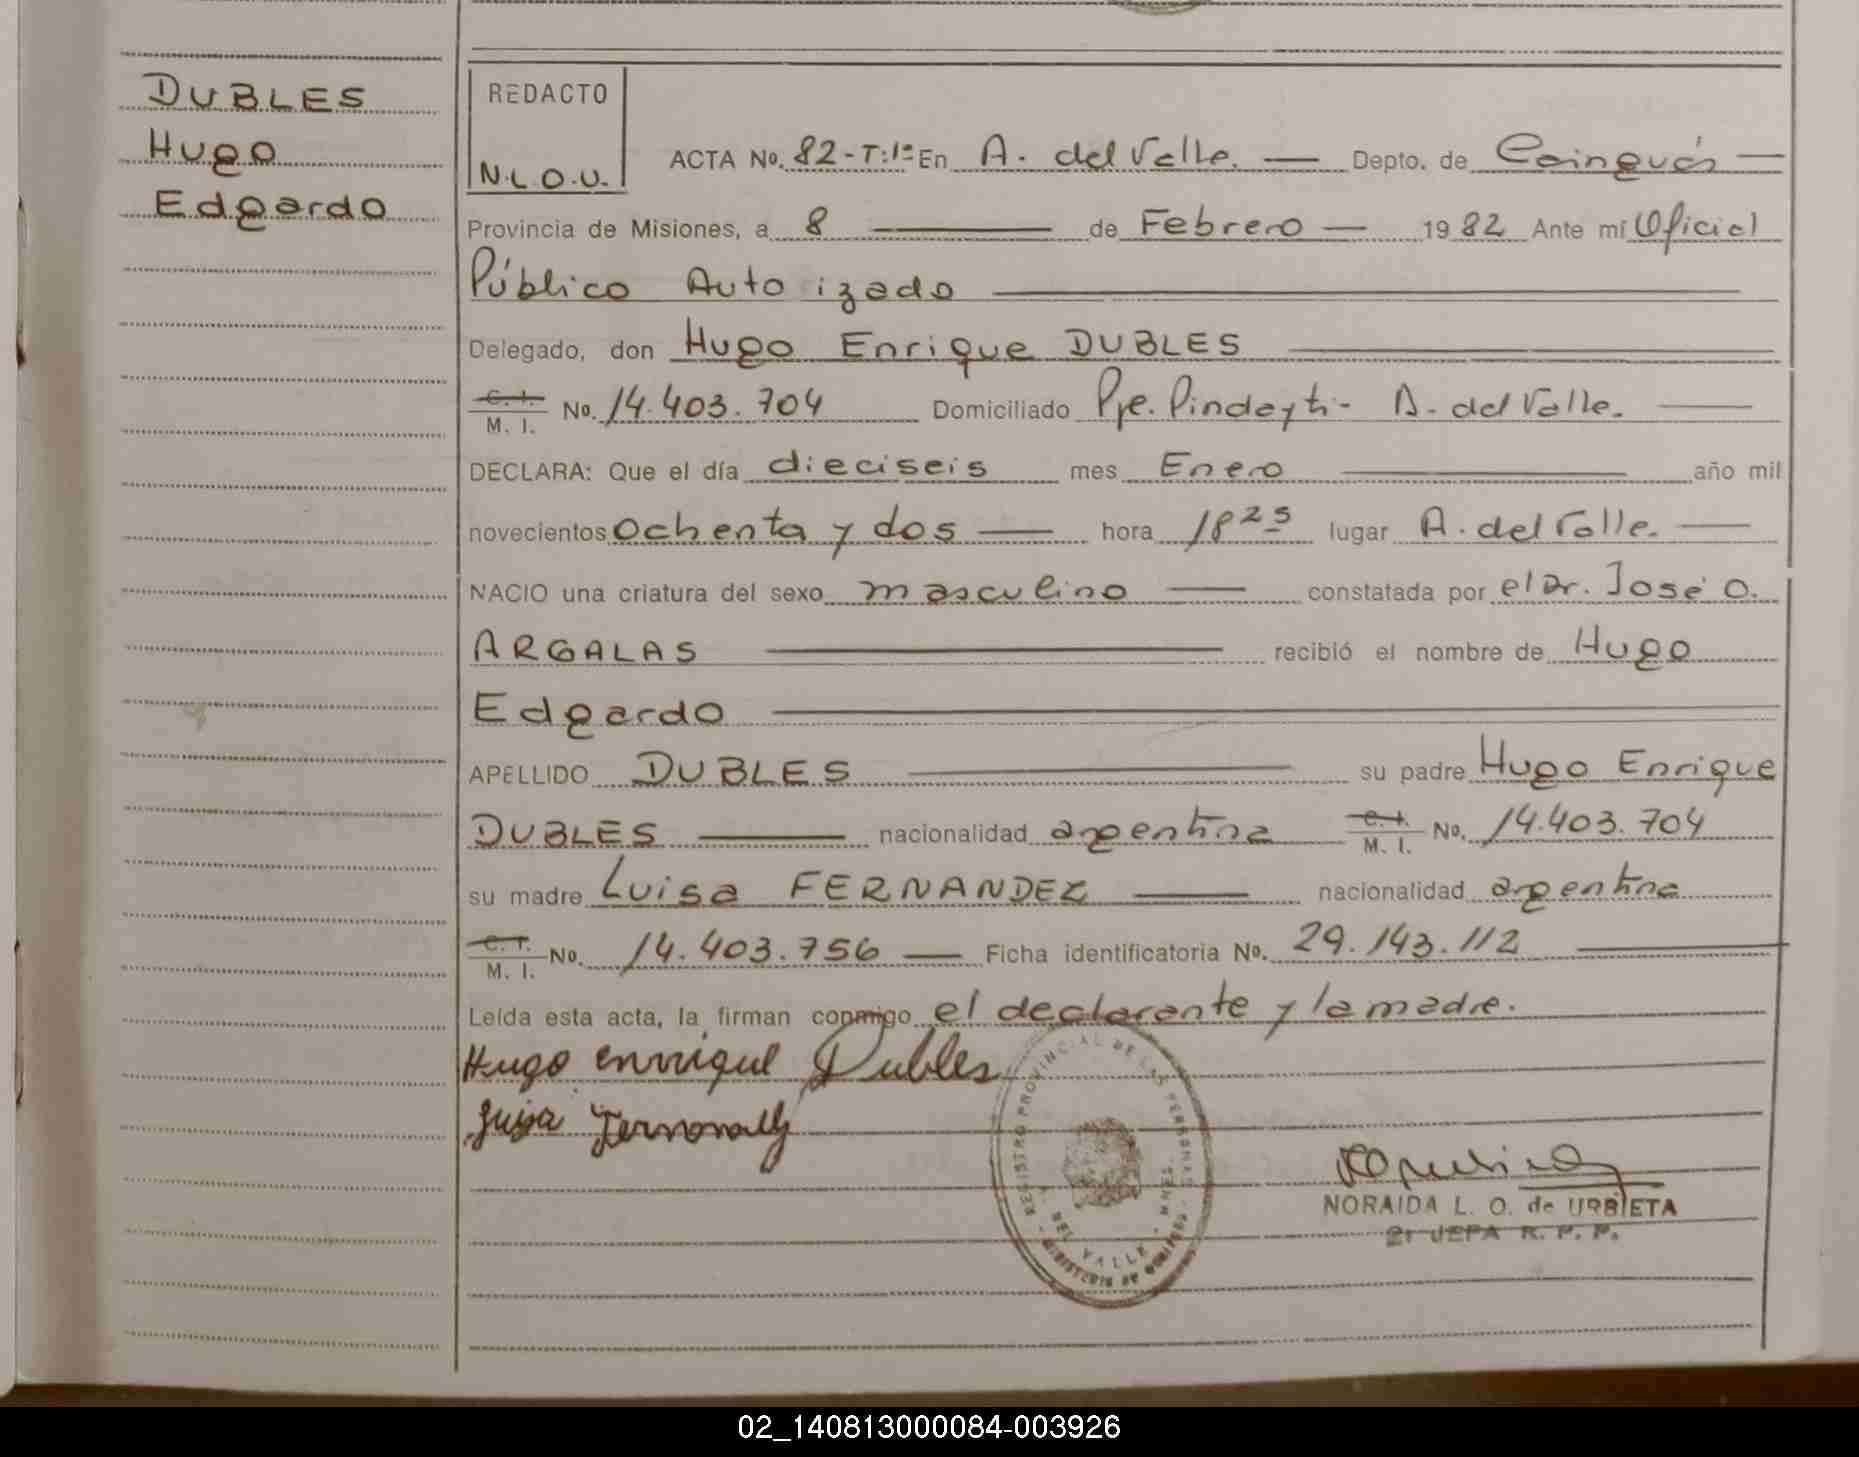 DUBLES
Hugo
Edgardo
REDACTO
N.L.O.U.
ACTA No. 82-T:1º En A. del Valle. — Depto. de Cainguás —
Provincia de Misiones, a 8 — de Febrero — 1982 Ante mí Oficial
Público Auto izado —
Delegado, don Hugo Enrique DUBLES —
C. I. / M. I. No. 14.403.704 Domiciliado Pje. Pindayti - A. del Valle. —
DECLARA: Que el día dieciseis mes Enero — año mil
novecientos ochenta y dos — hora 18 25 lugar A. del Valle. —
NACIO una criatura del sexo masculino — constatada por el Dr. José O.
ARGALAS — recibió el nombre de Hugo
Edgardo —
APELLIDO DUBLES — su padre Hugo Enrique
DUBLES — nacionalidad argentina C. I. / M. I. No. 14.403.704
su madre Luisa FERNANDEZ — nacionalidad argentina
C. I. / M. I. No. 14.403.756 — Ficha identificatoria No. 29.143.112 —
Leída esta acta, la firman conmigo el declarante y la madre.
Hugo enrrique Dubles
Luisa Fernandez
REGISTRO PROVINCIAL DE LAS PERSONAS
DEL VALLE
NORAIDA L. O. de URBIETA
JEFA R. P. P.
02_140813000084-003926